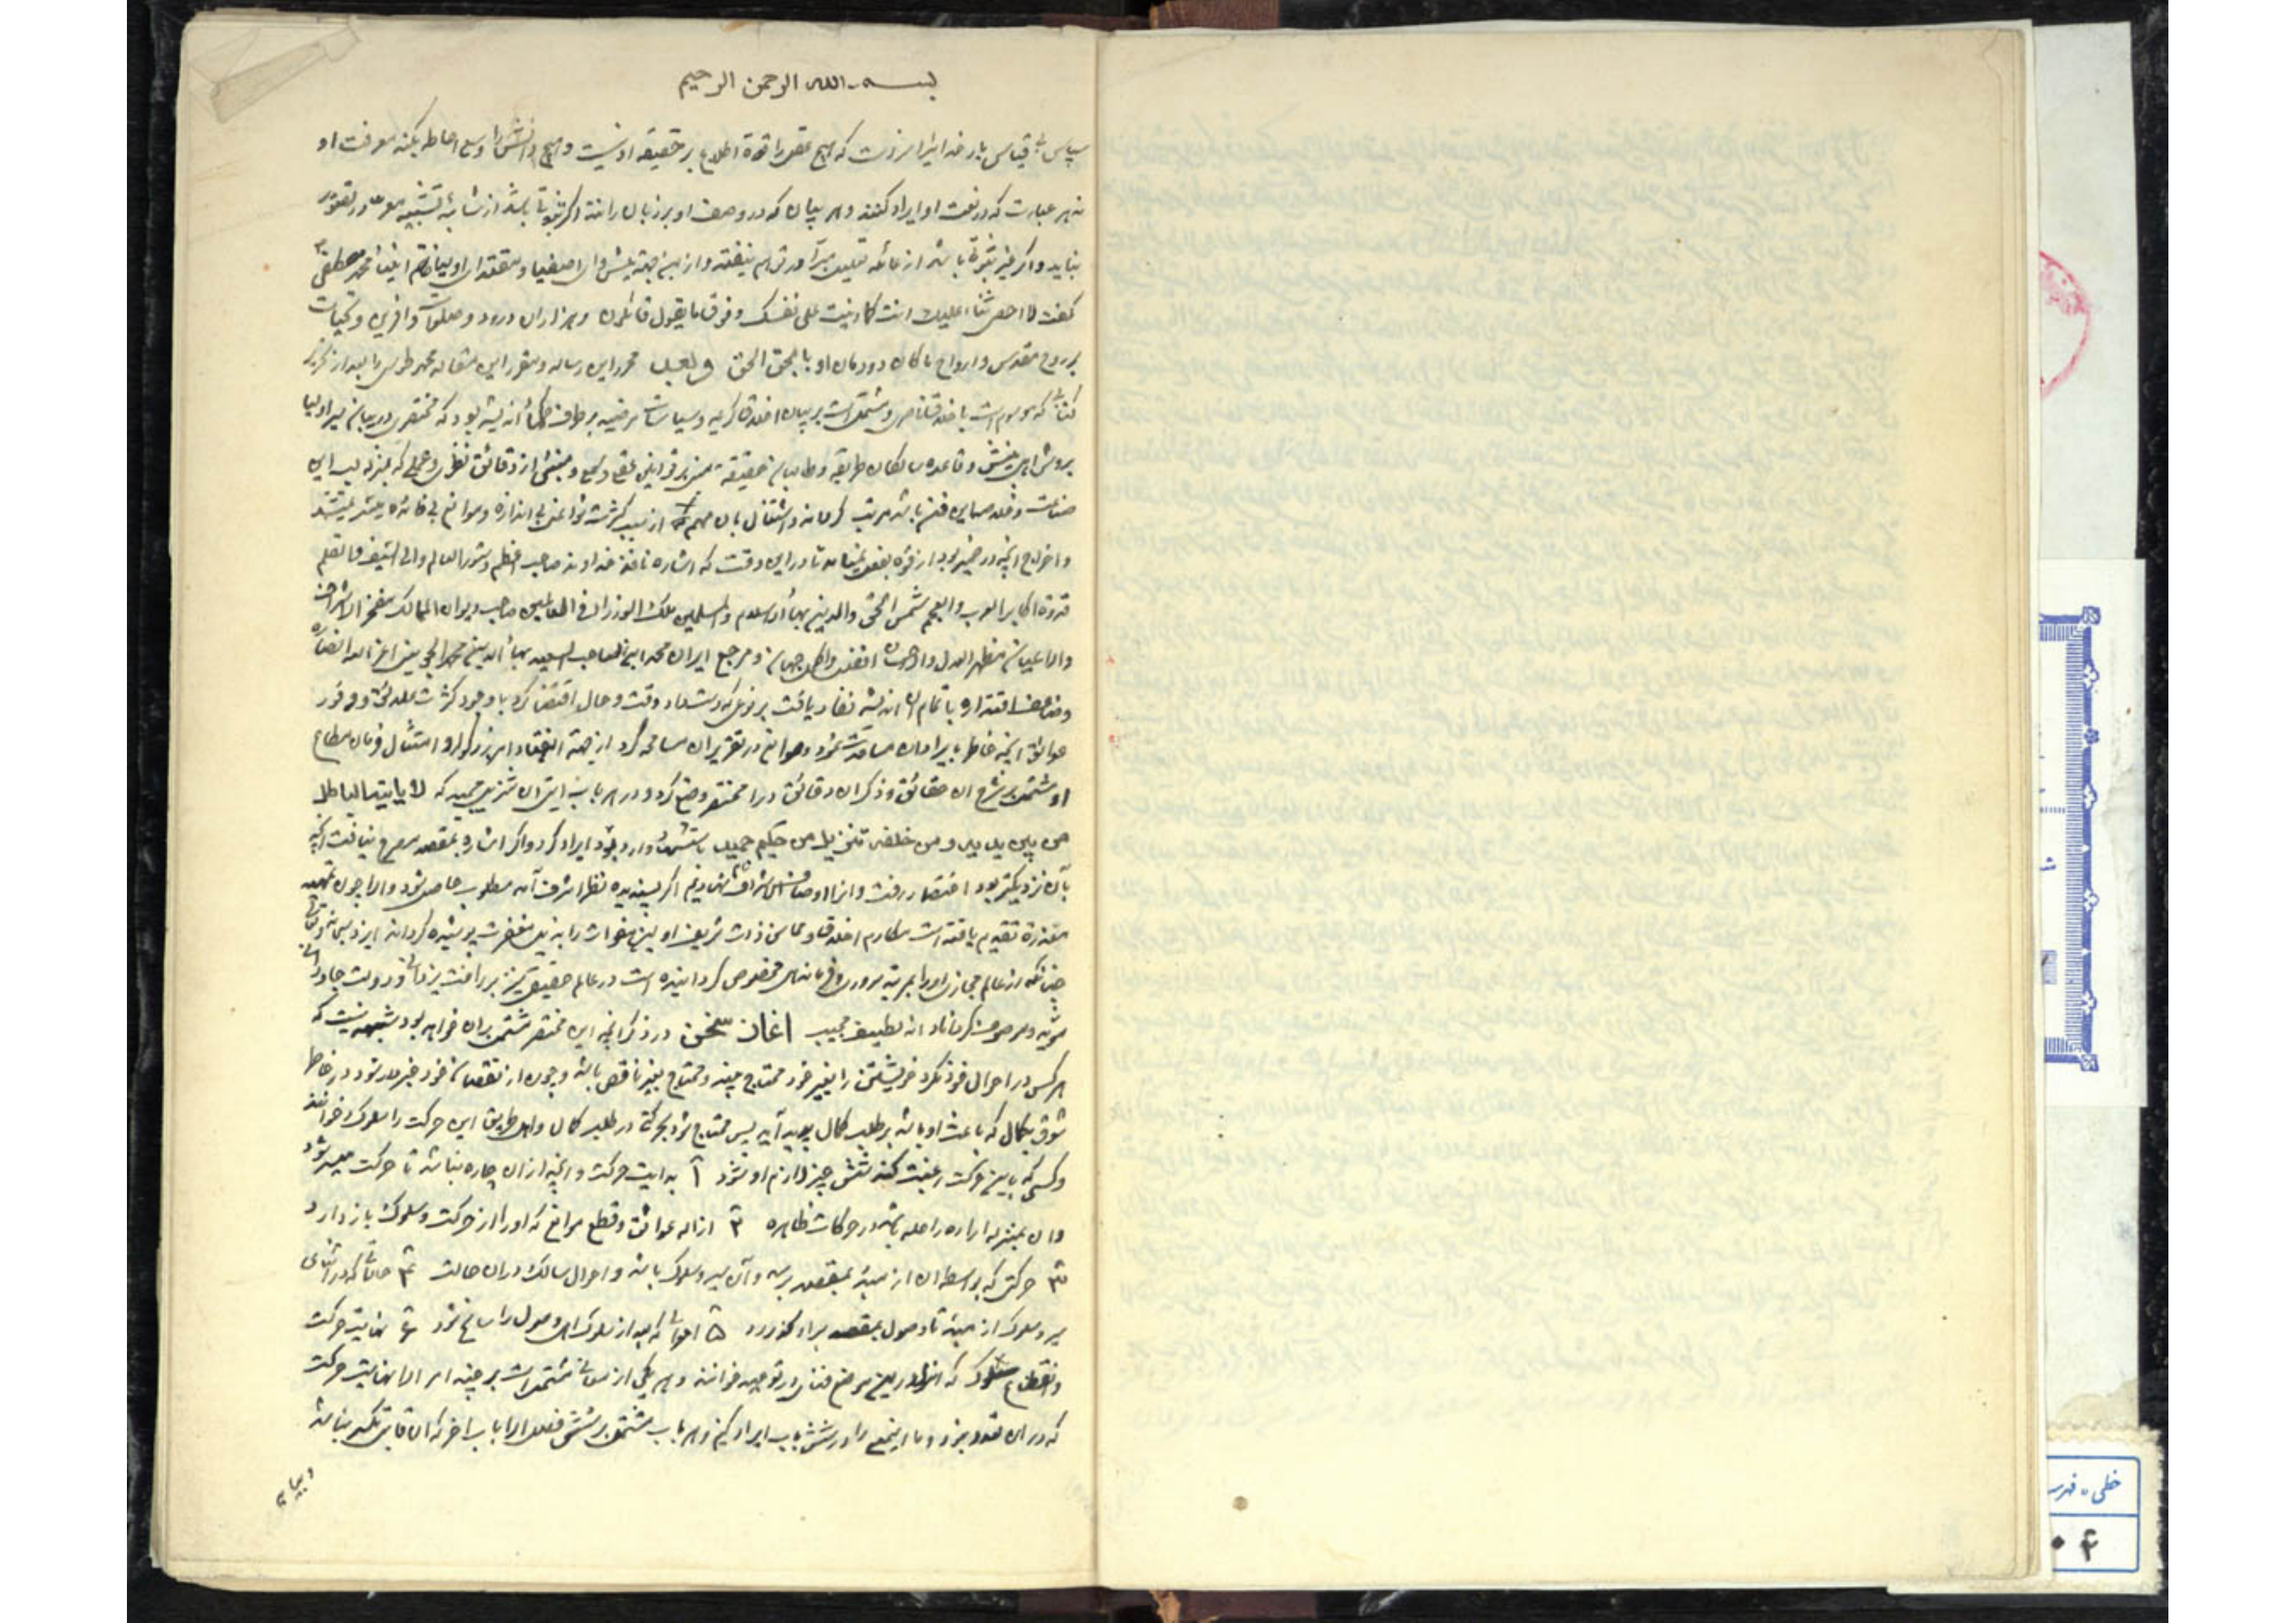 بسم الله الرحمن الرحیم
سپاس بی قیاس بار خدایرا سزد که هیچ عقل را قوة اطلاع بر حقیقة او نیست و هیچ دانش را وسع احاطه بکنه معرفت او
نه هر عبارت که در نعت او ایراد کنند و هر بیان که در وصف او بر زبان رانند اگر ثبوتی باشد از شائبه تشبیه معرا در تصور
نیاید و اگر غیر ثبوتی باشد از غائله تعطیل مبرا در توهم نیفتد و از این جهة پیشوای اصفیا و مقتدای اولیا و خاتم انبیا محمد مصطفی
گفت لا احصی ثناء علیک انت کما اثنیت علی نفسک و فوق ما یقول قائلون و هزاران درود و صلوات و آفرین و تحیات
بر روح مقدس و ارواح پاکان دودمان او باد بحق الحق و بعد محرر این رساله و مقرر این مقاله محمد طوسی را بعد از تحریر
کتابی که موسوم است باخلاق ناصری و مشتمل است بر بیان اخلاق کریمه و سیاسات مرضیه بر طریقه حکما اندیشه بود که مختصری در بیان سیر اولیا
و روش اهل بینش و قاعده سالکان طریقه و طالبان حقیقة مبنی بر قوانین عقلی و سمعی و منبئی از دقائق نظری و عملی که بمنزله لب این
صناعت و خلاصه این فن باشد مرتب گرداند و اشتغال بان مهم از سبب کثرت شواغل بی اندازه و موانع بی فائده میسر نمیشد
و اخراج انچه در ضمیر بود از قوة بفعل نمیامد تا در این وقت که اشاره نافذ خداوند صاحب اعظم دستور العالم والی السیف و القلم
قدوة اکابر العرب و العجم شمس الحق و الدین بهاء الاسلام و المسلمین ملک الوزراء فی العالمین صاحب دیوان الممالک مفخر الاشراف
و الاعیان مظهر العدل و الاحسان افضل و اکمل جهان و مرجع ایران محمد ابن الصاحب السعید بهاء الدین محمد الجوینی اعز الله انصاره
و ضاعف اقتداره باتمام ان اندیشه نفاذ یافت بر نوعی که دست داد و وقت و حال اقتضا کرد با وجود کثرت علائق و وفور
عوائق انچه خاطر بایراد ان مسامحت نمود و موانع در تقریر ان مسامحه کرد از جهة انقیاد امر بزرگوار و امتثال فرمان مطاع
او مشتمل بر شرح ان حقائق و ذکر ان دقائق در این مختصر وضع کرد و در هر باب ایتی از تنزیل مجید که لا یاتیه الباطل
من بین یدیه و من خلفه تنزیل من حکیم حمید باستشهاد وارد بود ایراد کرد و اگر اشاره بمقصد مصرح نیافت بر انچه
بآن نزدیکتر بود اختصار رفت و انرا اوصاف الاشراف نام نهادیم اگر پسندیده نظر اشرف آید مطلوب حاصل بود و الا چون تمهید
معذرة تقدیم یافته است مکارم اخلاق و محاسن ذات شریف او این هفوات را بذیل مغفرت پوشیده گرداند ایزد سبحانه و تعالی
چنانکه در عالم مجازی او را بمرتبه سروری و فرماندهی مخصوص گردانیده است در عالم حقیقی نیز برافت یزدانی و دولت جاودانی
مزین و موصوف گرداناد انه لطیف مجیب اغاز سخن در ذکر انچه این مختصر مشتمل بران خواهد بود شبهه نیست که
هر کس در احوال خود نگرد خویشتن را بغیر خود محتاج بیند و محتاج بغیر ناقص باشد و چون از نقصان خود خبردار شود در خاطر
شوق بکمال که باعث او باشد بر طلب کمال پدید آید پس محتاج شود بحرکتی در طلب کمال و اهل طریق این حرکت را سلوک خوانند
و کسی که باین حرکت رغبت کند شش چیز لازم او شود ۱ بدایت حرکت و انچه از ان چاره نباشد تا حرکت میسر شود
و ان بمنزله زاد و راحله باشد در حرکات ظاهره ۲ ازاله عوائق و قطع موانع که او را از حرکت و سلوک باز دارد
۳ حرکتی که بواسطه ان از مبدا بمقصد برسد و آن سیر و سلوک باشد و احوال سالک در ان حالت ۴ حالاتی که در اثنای
سیر و سلوک از مبدا تا وصول بمقصد براو گذرد ۵ احوالی که بعد از سلوک اهل وصول را سانح شود ۶ نهایت حرکت
و انقطاع سلوک که انرا در این موضع فنای در توحید خوانند و هر یکی از این معانی مشتمل است بر چند امر الا نهایت حرکت
که در ان تعدد نبود و ما این معنی را در شش باب ایراد کنیم و هر باب مشتمل بر شش فصل الا باب اخر که ان قابل تکثیر نباشد